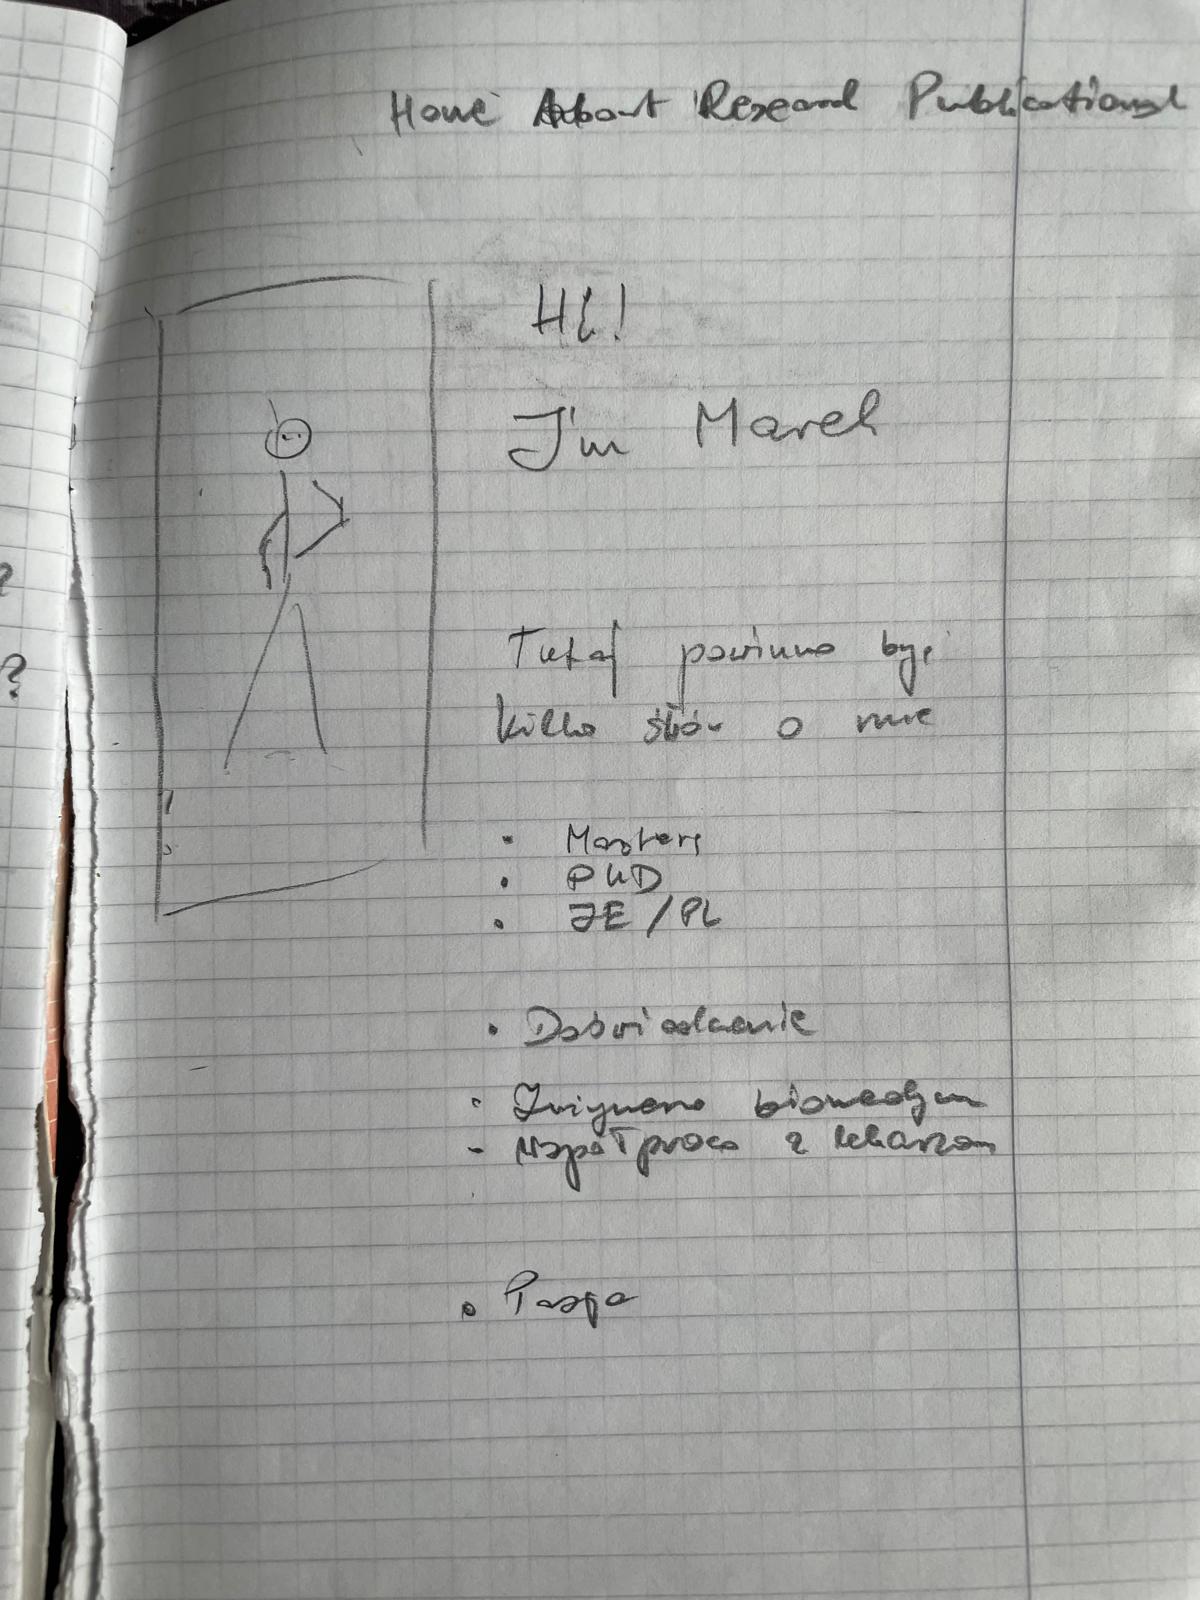 Home About Research Publications
Hi!
I'm Marek
Tutaj powinno być
kilka słów o mnie
• Masters
• PhD
• JE / PL
• Doświadczenie
• Inżyniera biomedyczn
- Współpraca z lekarzam
• Pasja
?
?